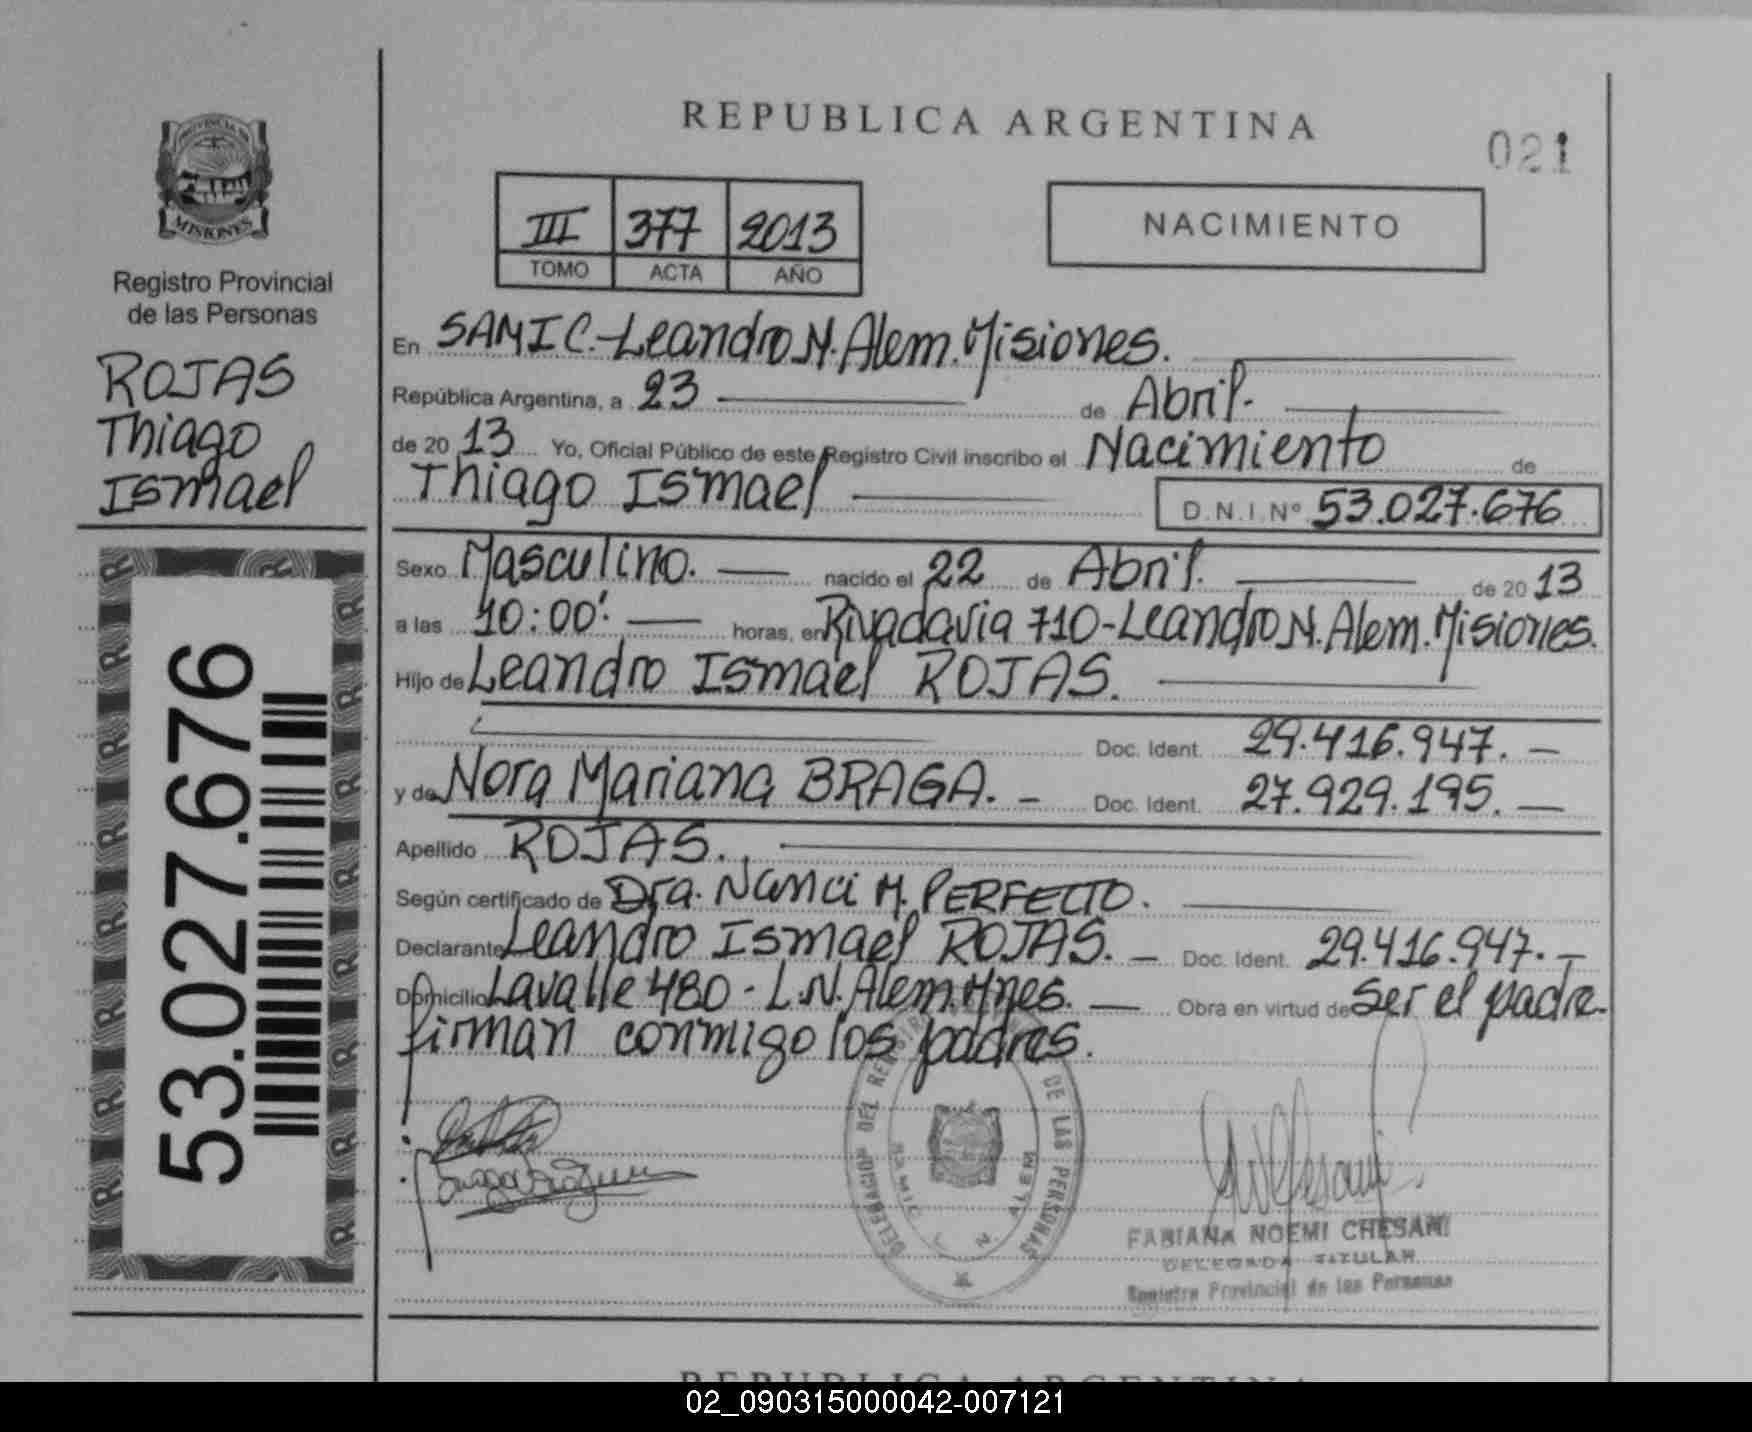 REPUBLICA ARGENTINA
021
PROVINCIA DE
MISIONES
Registro Provincial
de las Personas
ROJAS
Thiago
Ismael
53.027.676
III 377 2013
TOMO ACTA AÑO
NACIMIENTO
En SAMIC.-Leandro N. Alem. Misiones.
República Argentina, a 23 de Abril.
de 20 13 Yo, Oficial Público de este Registro Civil inscribo el Nacimiento de
Thiago Ismael D.N.I. Nº 53.027.676
Sexo Masculino. nacido el 22 de Abril. de 20 13
a las 10:00'. horas, en Rivadavia 710-Leandro N. Alem. Misiones.
Hijo de Leandro Ismael ROJAS.
Doc. Ident. 29.416.947.
y de Nora Mariana BRAGA. Doc. Ident. 27.929.195.
Apellido ROJAS.
Según certificado de Dra. Nanci M. PERFECTO.
Declarante Leandro Ismael ROJAS. Doc. Ident. 29.416.947.
Domicilio Lavalle 480 - L.N. Alem. Mnes. Obra en virtud de ser el padre.
firman conmigo los padres.
DELEGACION DEL REGISTRO DE LAS PERSONAS
SAMIC L. N. ALEM
FABIANA NOEMI CHESANI
DELEGADA TITULAR
Registro Provincial de las Personas
REPUBLICA ARGENTINA
02_090315000042-007121